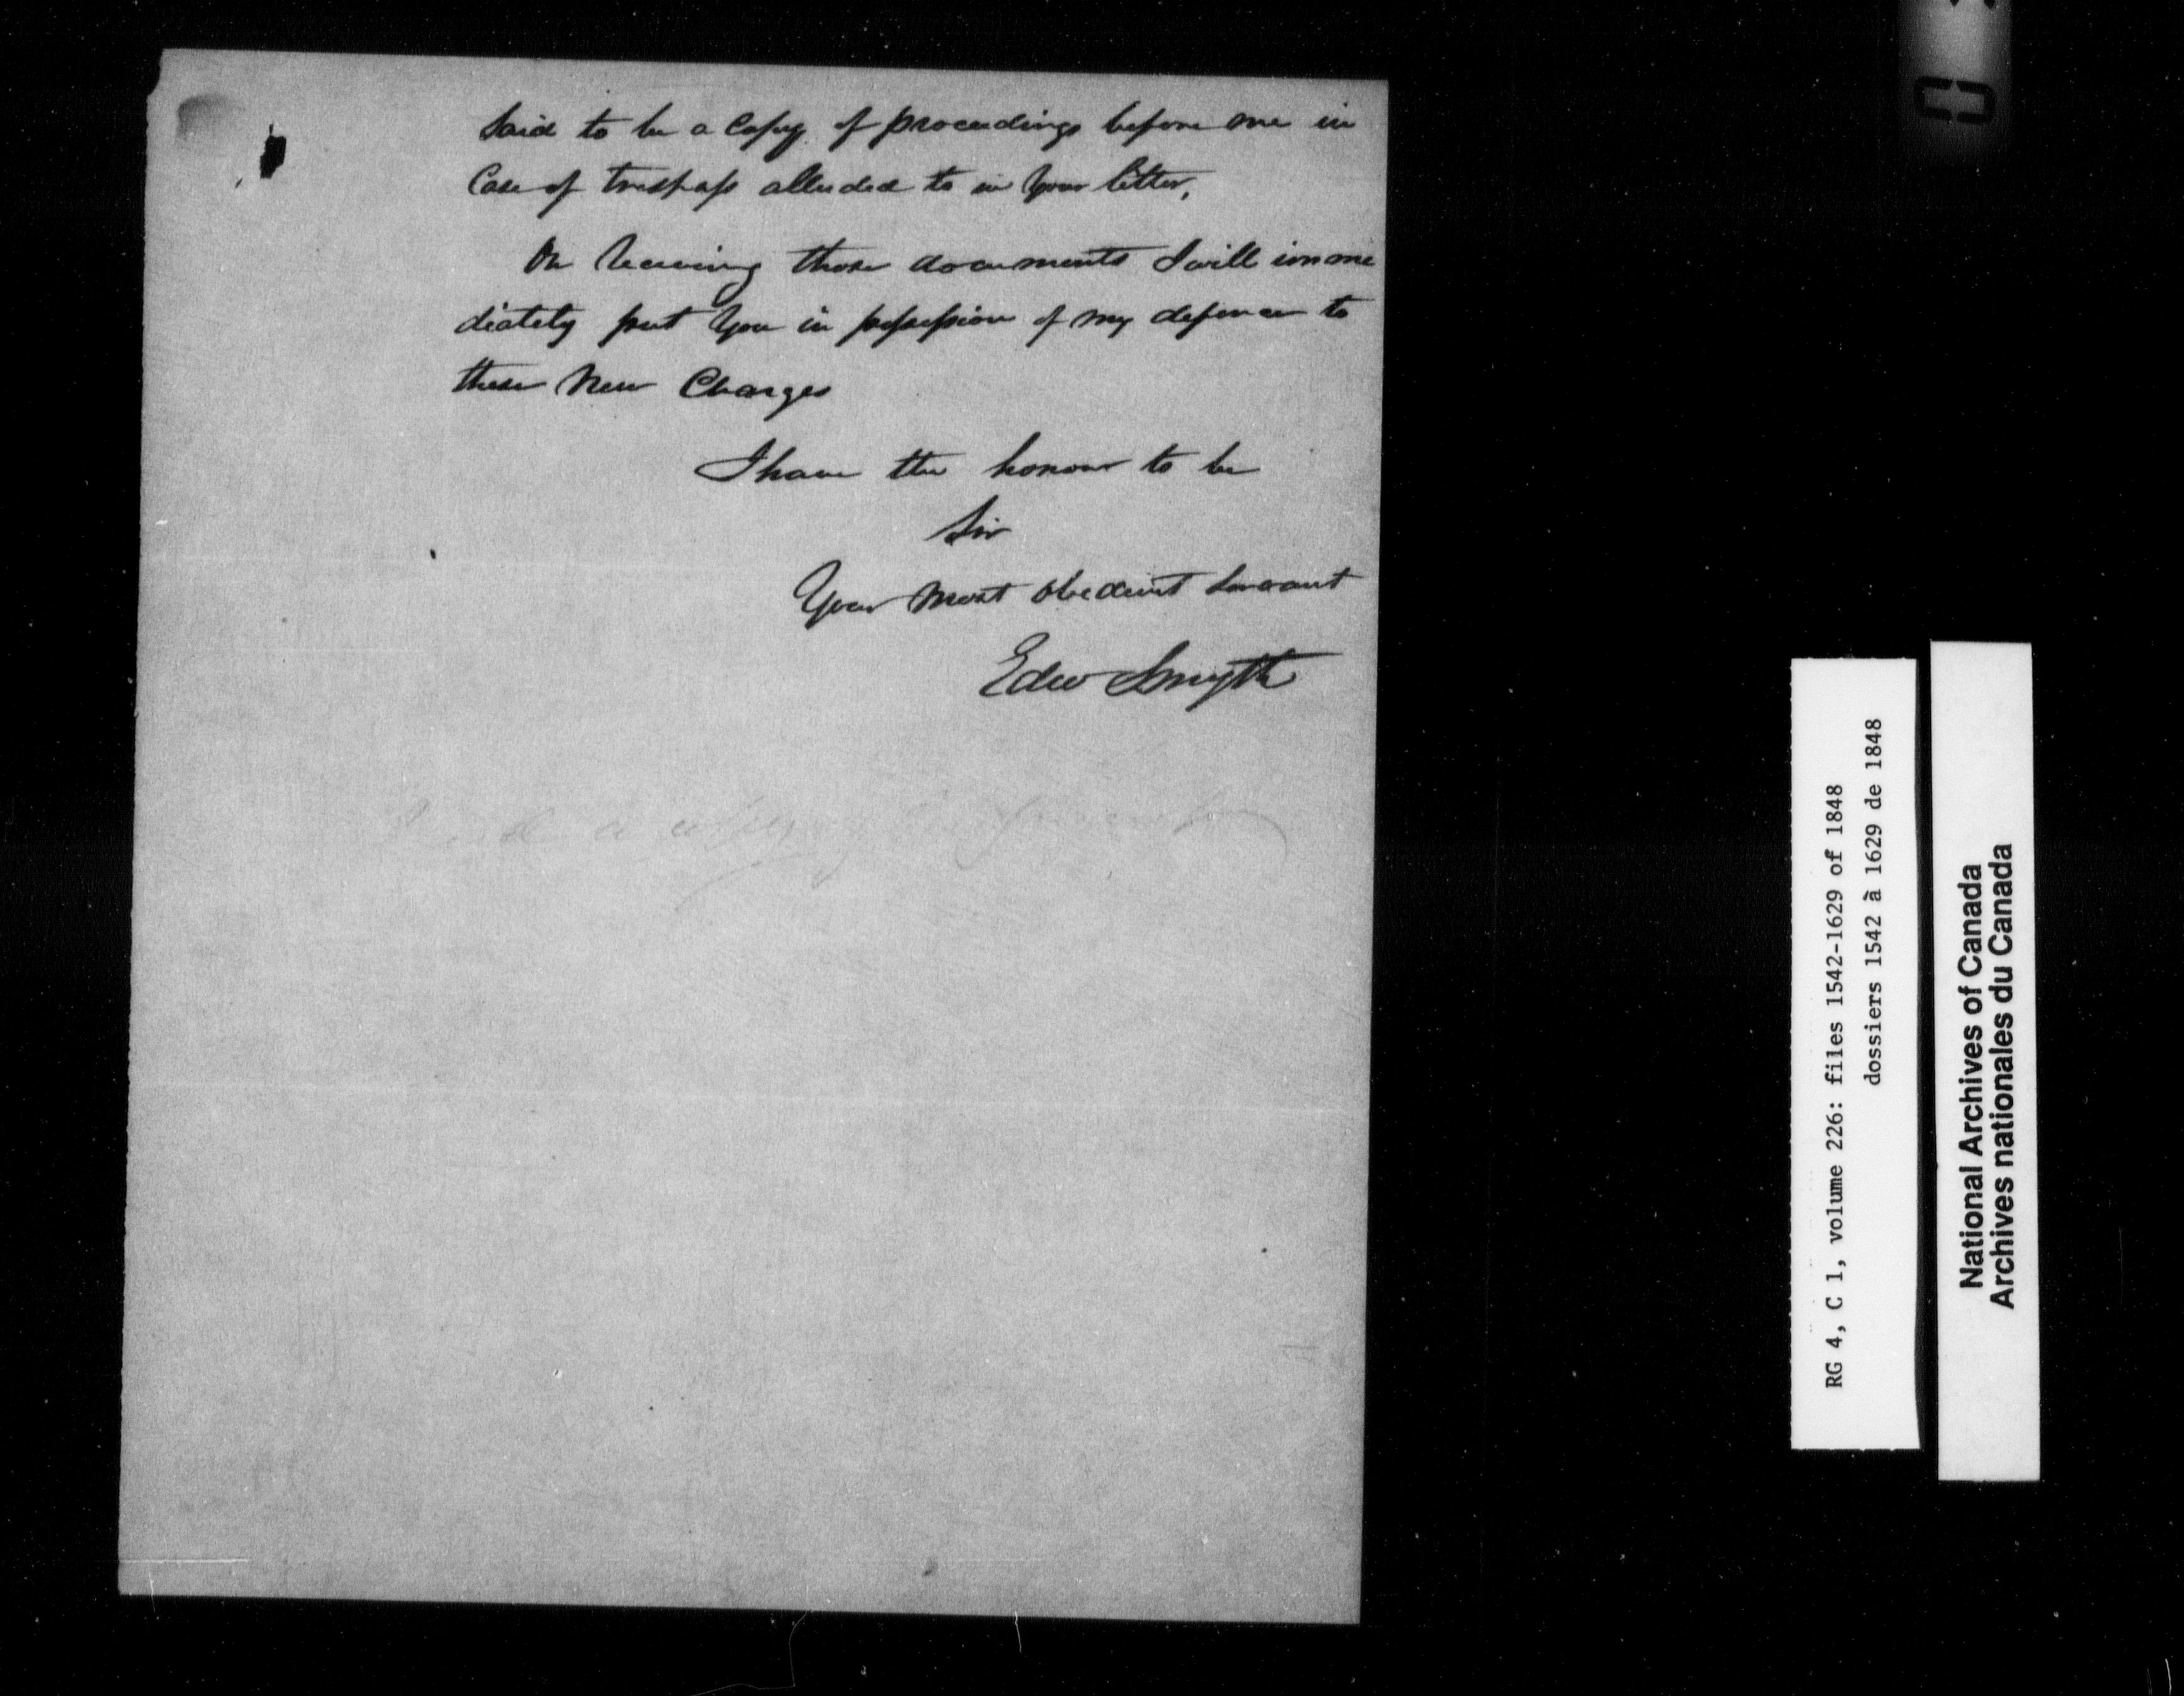 Said to be a Copy of proceedings before me in
Case of trespass alluded to in Your letter,
On receiving those documents I will imme
diately put You in possession of my defence to
these New Charges
I have the honour to be
Sir
Your Most Obedient Servant
Edw Smyth
a copy of
RG 4, C 1, volume 226: files 1542-1629 of 1848
dossiers 1542 à 1629 de 1848
National Archives of Canada
Archives nationales du Canada